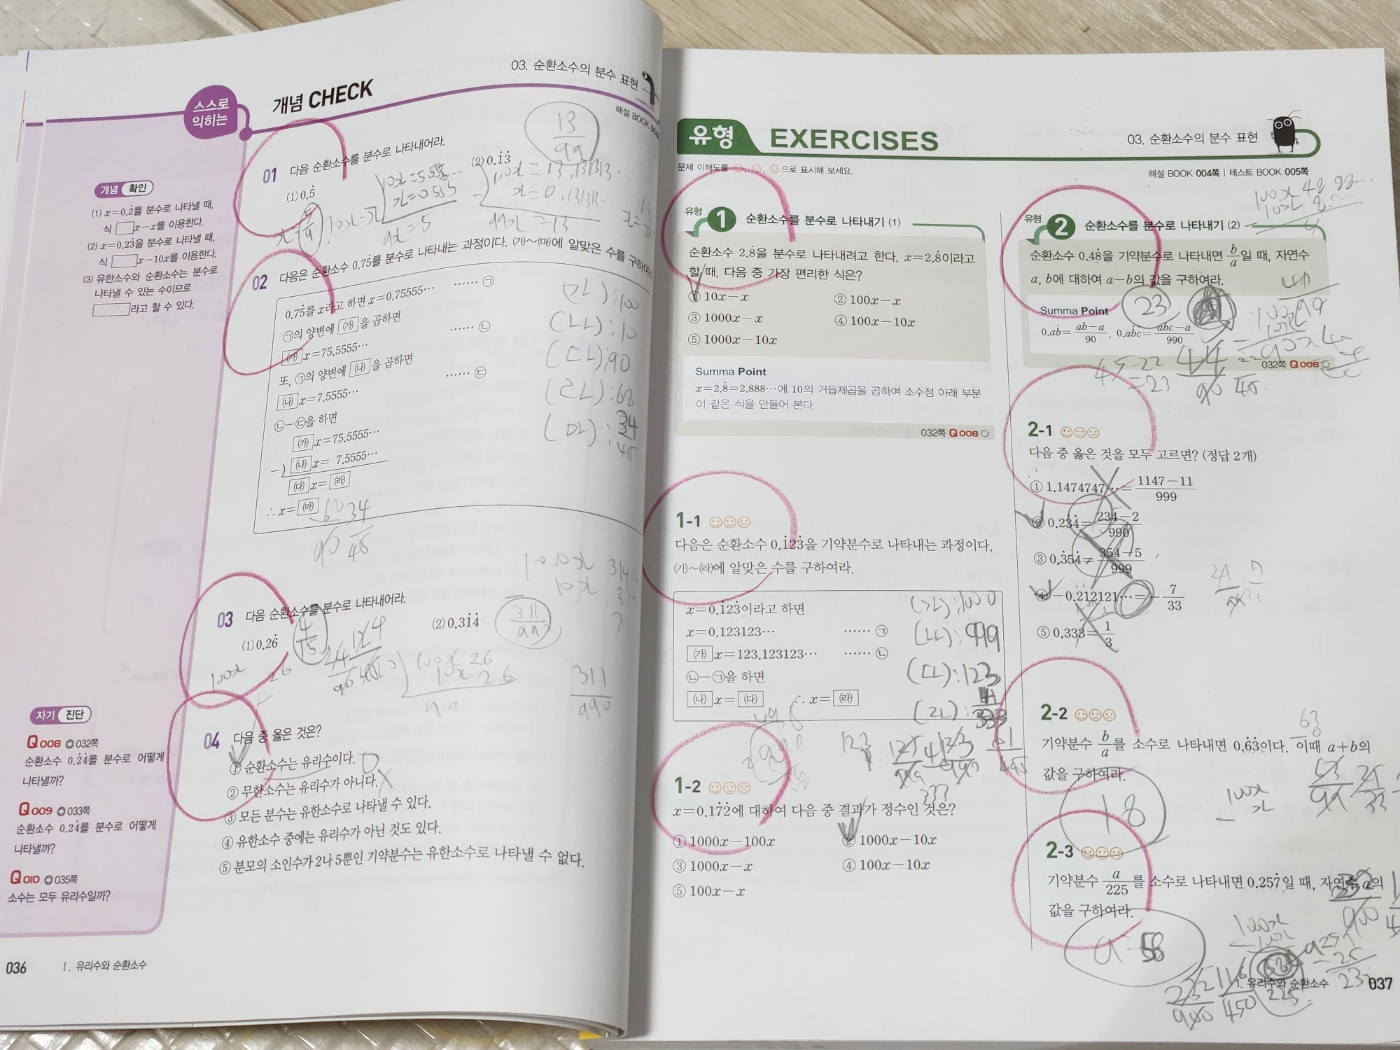 03. 순환소수의 분수 표현
해설 BOOK
스스로
익히는
개념 CHECK
개념 확인
(1) x=0.2̇를 분수로 나타낼 때,
식 □x-x를 이용한다.
(2) x=0.25̇을 분수로 나타낼 때,
식 □x-10x를 이용한다.
(3) 유한소수와 순환소수는 분수로
나타낼 수 있는 수이므로
□라고 할 수 있다.
자기 진단
Q 008 032쪽
순환소수 0.2̇4̇를 분수로 어떻게
나타낼까?
Q 009 033쪽
순환소수 0.24̇를 분수로 어떻게
나타낼까?
Q 010 035쪽
소수는 모두 유리수일까?
01 다음 순환소수를 분수로 나타내어라.
(1) 0.5̇
(2) 0.1̇3̇
13/99
10x=5.555…
x=0.555
9x=5
100x=13.1313…
x=0.1313…
99x=13
02 다음은 순환소수 0.75̇를 분수로 나타내는 과정이다. ㈎~㈒에 알맞은 수를 구하여라.
0.75̇를 x라고 하면 x=0.75555… …… ㉠
㉠의 양변에 ㈎를 곱하면
㈎x=75.5555… …… ㉡
또, ㉠의 양변에 ㈏를 곱하면
㈏x=7.5555… …… ㉢
㉡-㉢을 하면
㈎x=75.5555…
-) ㈏x= 7.5555…
㈐x=㈑
∴ x=㈒
(ㄱㅏ):100
(ㄴㅏ):10
(ㄷㅏ):90
(ㄹㅏ):68
(ㅁㅏ):34/45
03 다음 순환소수를 분수로 나타내어라.
(1) 0.26̇
(2) 0.31̇4̇
4/15
311/990
04 다음 중 옳은 것은?
① 순환소수는 유리수이다. O
② 무한소수는 유리수가 아니다. X
③ 모든 분수는 유한소수로 나타낼 수 있다.
④ 유한소수 중에는 유리수가 아닌 것도 있다.
⑤ 분모의 소인수가 2나 5뿐인 기약분수는 유한소수로 나타낼 수 없다.
036 I. 유리수와 순환소수
유형 EXERCISES
03. 순환소수의 분수 표현
문제 이해도를 으로 표시해 보세요.
해설 BOOK 004쪽 | 테스트 BOOK 005쪽
유형 1 순환소수를 분수로 나타내기 (1)
순환소수 2.8̇을 분수로 나타내려고 한다. x=2.8̇이라고
할 때, 다음 중 가장 편리한 식은?
① 10x-x ② 100x-x
③ 1000x-x ④ 100x-10x
⑤ 1000x-10x
Summa Point
x=2.8̇=2.888…에 10의 거듭제곱을 곱하여 소수점 아래 부분
이 같은 식을 만들어 본다.
032쪽 Q 008
1-1
다음은 순환소수 0.1̇23̇을 기약분수로 나타내는 과정이다.
㈎~㈑에 알맞은 수를 구하여라.
x=0.1̇23̇이라고 하면
x=0.123123… …… ㉠
㈎x=123.123123… …… ㉡
㉡-㉠을 하면
㈏x=㈐ ∴ x=㈑
(ㄱㅏ):1000
(ㄴㅏ):999
(ㄷㅏ):123
(ㄹㅏ):41/333
1-2
x=0.17̇2̇에 대하여 다음 중 결과가 정수인 것은?
① 1000x-100x ② 1000x-10x
③ 1000x-x ④ 100x-10x
⑤ 100x-x
유형 2 순환소수를 분수로 나타내기 (2)
순환소수 0.48̇을 기약분수로 나타내면 b/a일 때, 자연수
a, b에 대하여 a-b의 값을 구하여라.
23
Summa Point
0.aḃ=(ab-a)/90, 0.aḃċ=(abc-a)/990
032쪽 Q 008
45-22
=23
44/90
22/45
2-1
다음 중 옳은 것을 모두 고르면? (정답 2개)
① 1.1474747…=(1147-11)/999
② 0.23̇4̇=(234-2)/990
③ 0.3̇54̇=(354-5)/999
④ -0.212121…=-7/33
⑤ 0.333=1/3
2-2
기약분수 b/a를 소수로 나타내면 0.6̇3̇이다. 이때 a+b의
값을 구하여라.
18
2-3
기약분수 a/225를 소수로 나타내면 0.257̇일 때, 자연수 a의
값을 구하여라.
a=58
I. 유리수와 순환소수 037